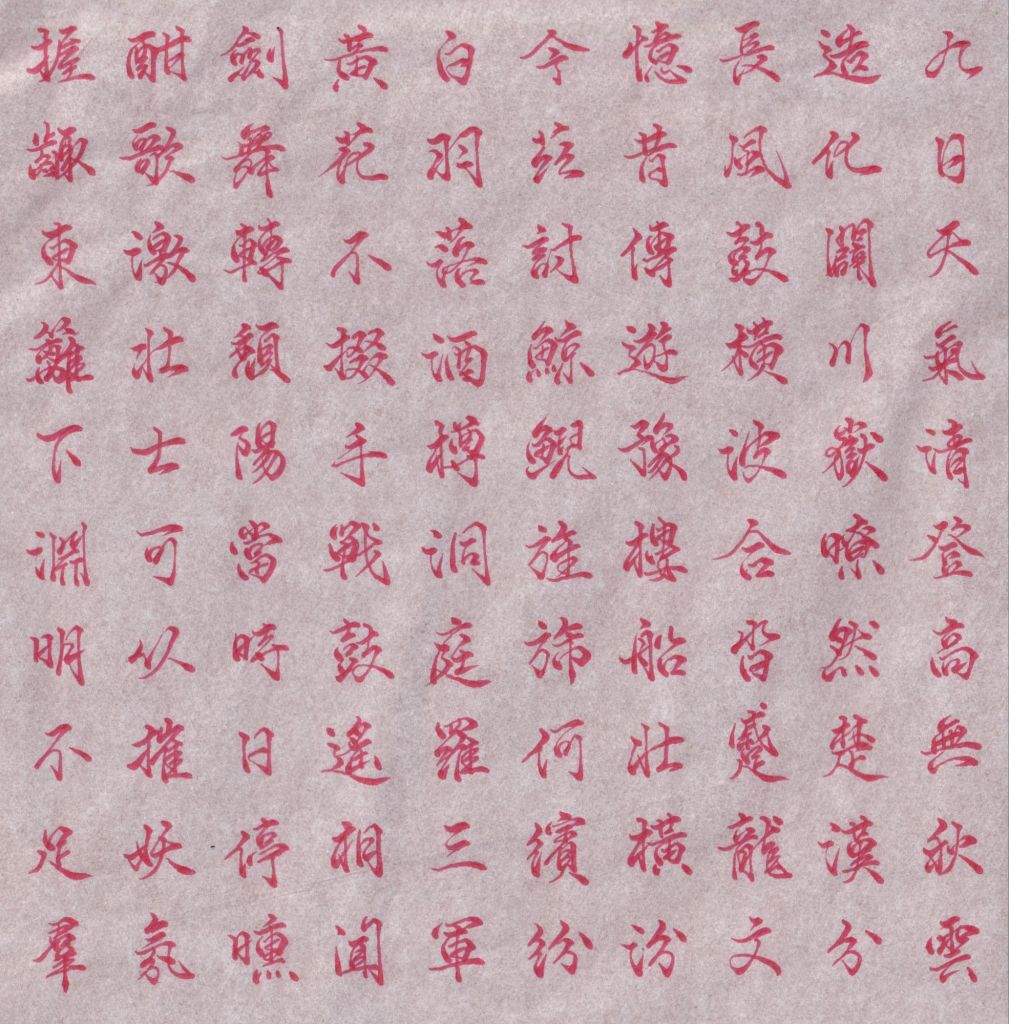 九日天氣清登高無秋雲
造化闢川嶽嘹然楚漢分
長風鼓橫波合沓蹙龍文
憶昔傳遊豫樓船壯橫汾
今茲討鯨鯢旌旆何繽紛
白羽落酒樽洞庭羅三軍
黃花不掇手戰鼓遙相聞
劍舞轉頹陽當時日停曛
酣歌激壯士可以摧妖氛
握齱東籬下淵明不足羣